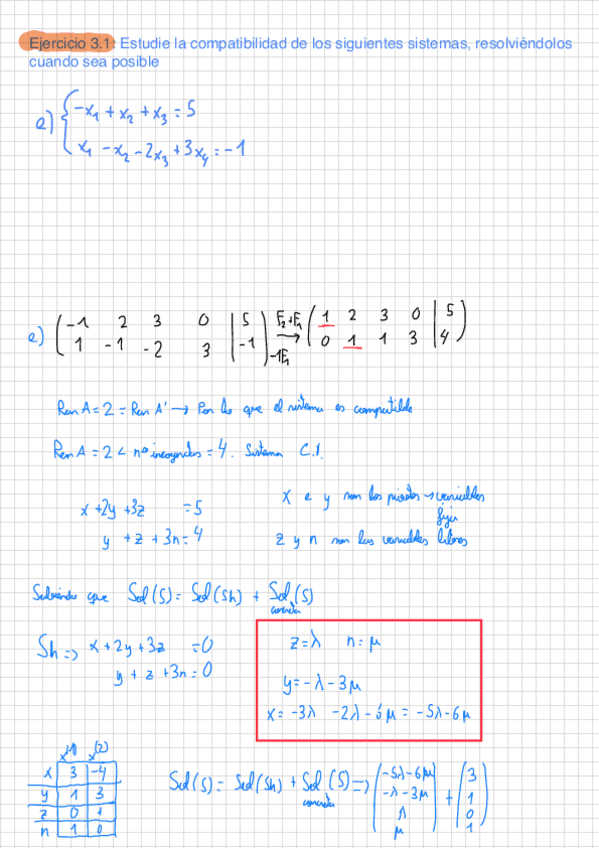 Ejercicio 3.1: Estudie la compatibilidad de los siguientes sistemas, resolviéndolos
cuando sea posible
e) { -x₁ + x₂ + x₃ = 5
x₁ - x₂ - 2x₃ + 3x₄ = -1
e) ( -1 2 3 0 | 5 ) F₂+F₁ → ( 1 2 3 0 | 5 )
( 1 -1 -2 3 | -1 ) -1F₁ ( 0 1 1 3 | 4 )
Ran A = 2 = Ran A' → Por lo que el sistema es compatible
Ran A = 2 < nº incognitas = 4. Sistema C.I.
x + 2y + 3z = 5 x e y son los pivotes → variables
fijas
y + z + 3n = 4 z y n son las variables libres
Sabiendo que Sol(S) = Sol(Sh) + Sol(S)
concreta
Sh => x + 2y + 3z = 0
y + z + 3n = 0
z = λ n = μ
y = -λ - 3μ
x = -3λ -2λ - 6μ = -5λ - 6μ
x⁽¹⁾ x⁽²⁾
x 3 -4
y 1 3
z 0 1
n 1 0
Sol(S) = Sol(Sh) + Sol(S) =>
concreta
( -5λ - 6μ ) ( 3 )
( -λ - 3μ ) + ( 1 )
( λ ) ( 0 )
( μ ) ( 1 )